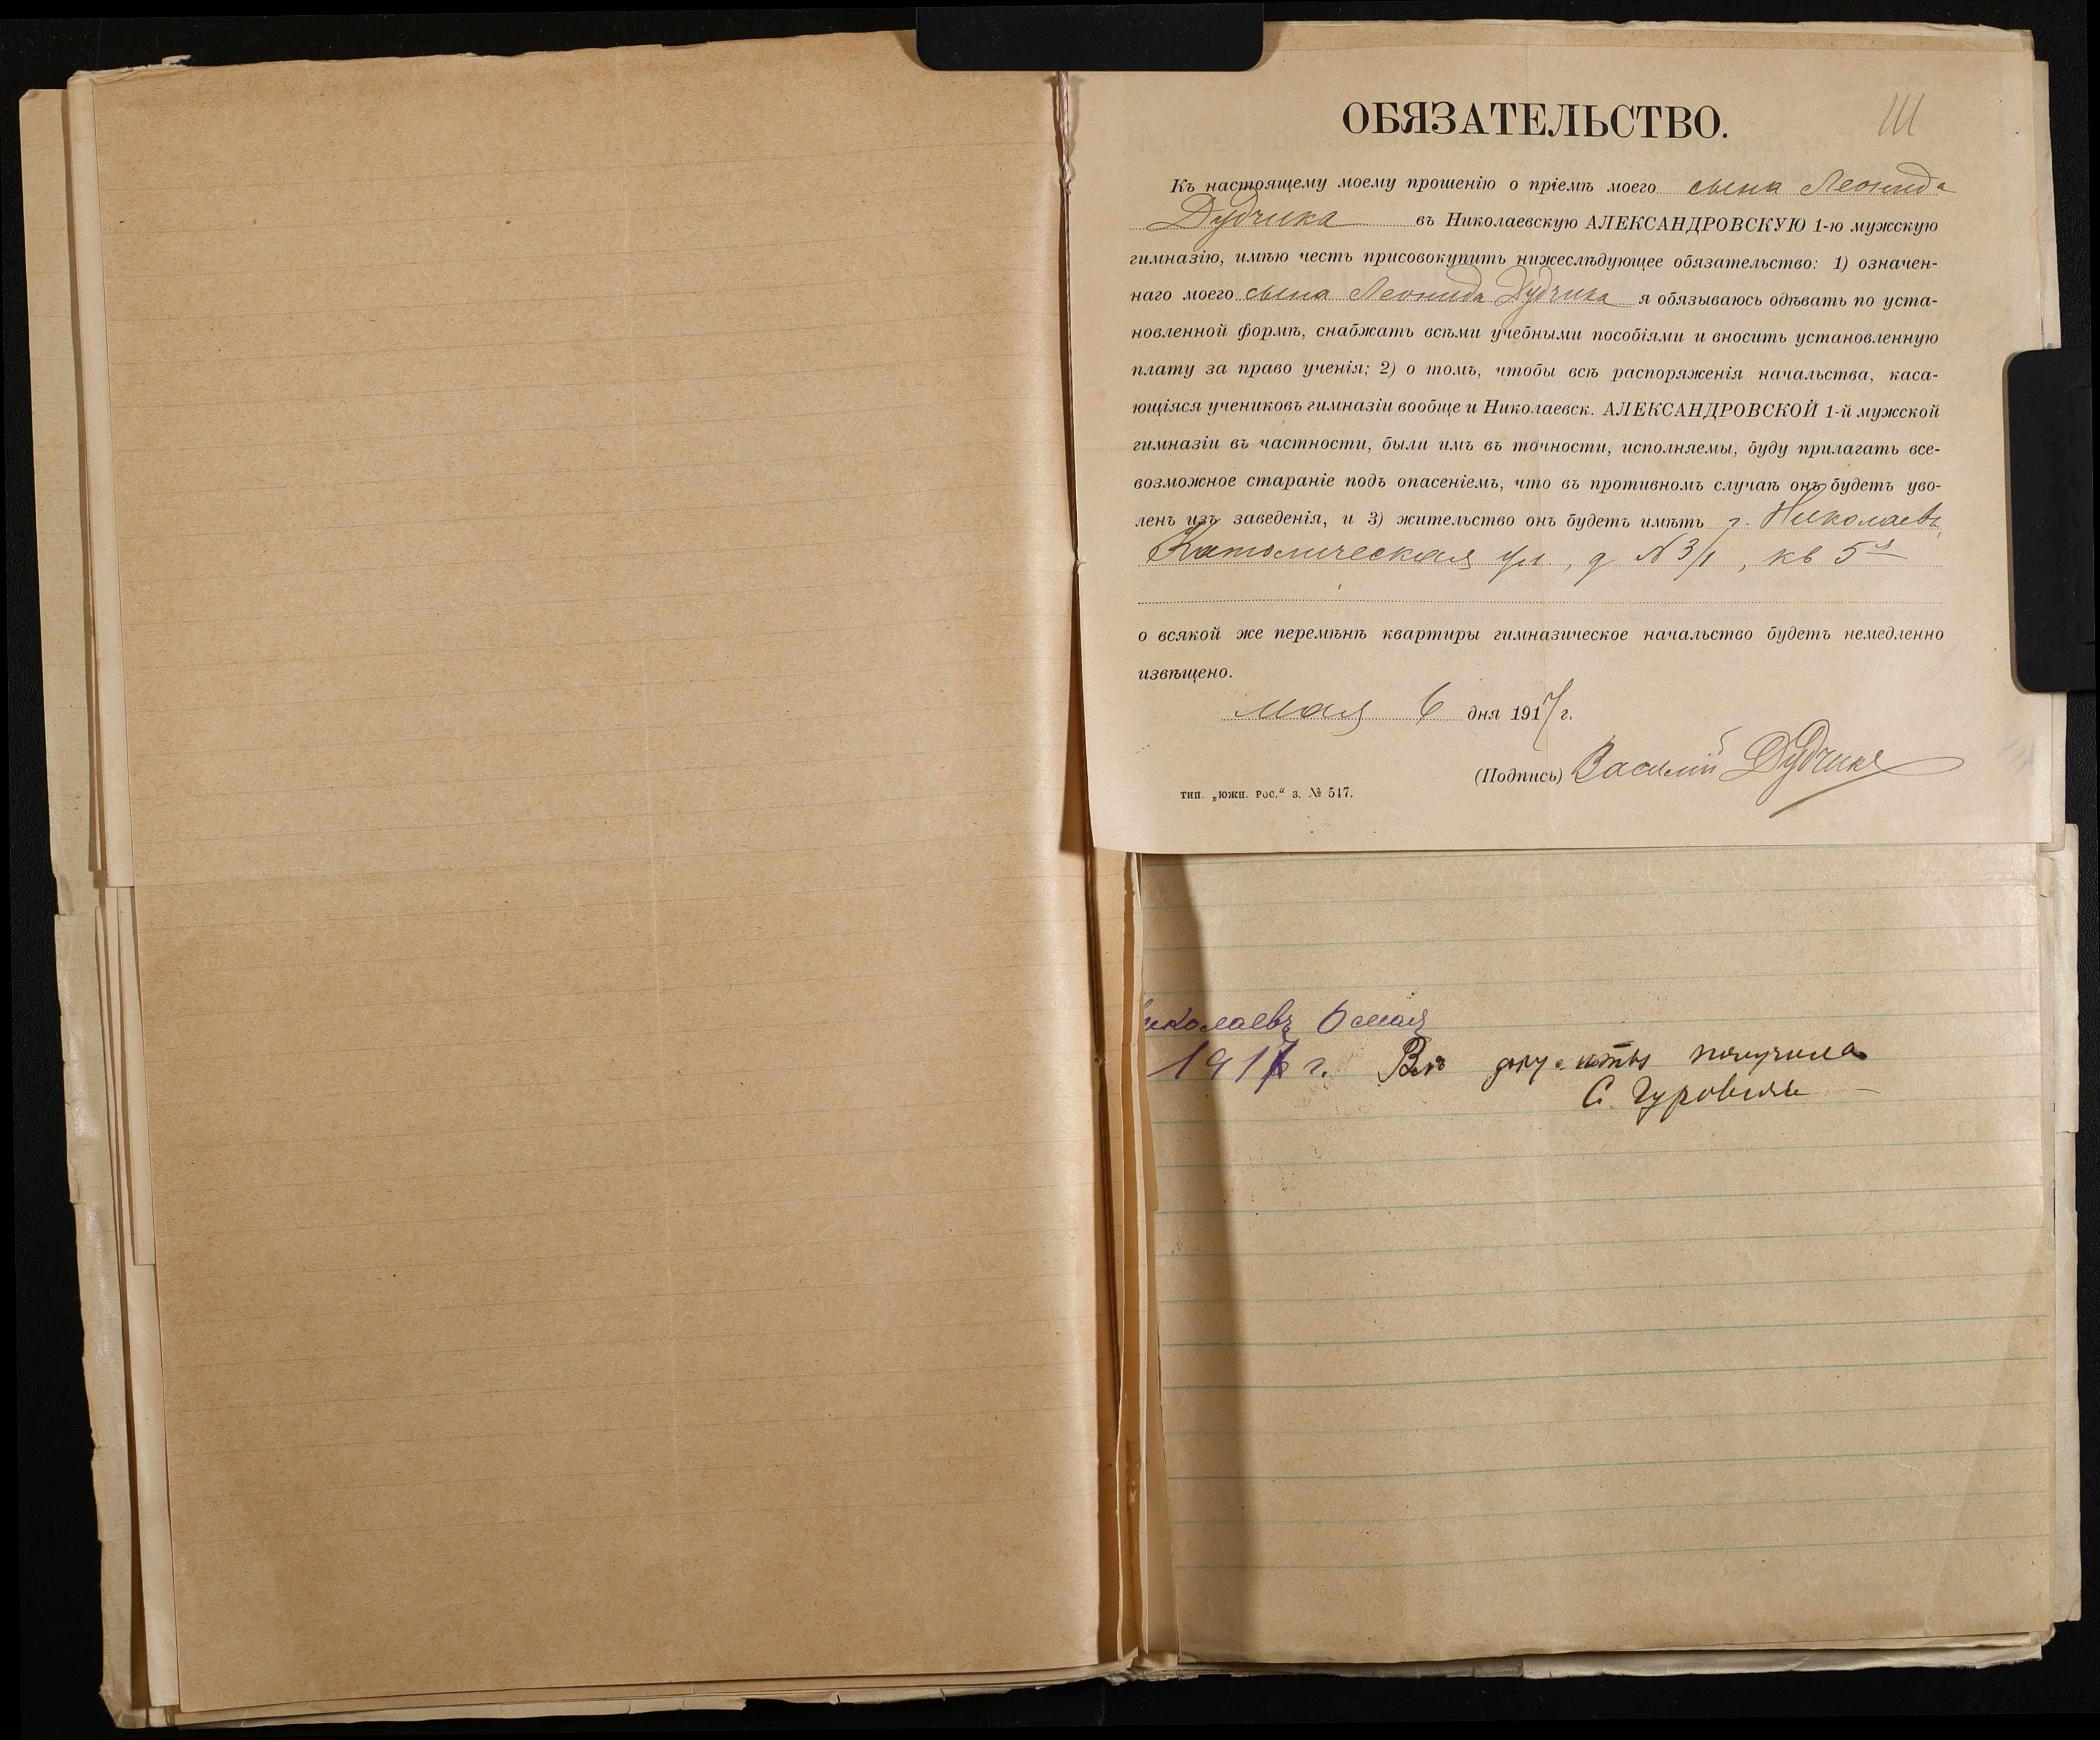 ОБЯЗАТЕЛЬСТВО.
111
Къ настоящему моему прошенію о пріемѣ моего сына Леонида
Дудчика въ Николаевскую АЛЕКСАНДРОВСКУЮ 1-ю мужскую
гимназію, имѣю честь присовокупить нижеслѣдующее обязательство: 1) означен-
наго моего сына Леонида Дудчика я обязываюсь одѣвать по уста-
новленной формѣ, снабжать всѣми учебными пособіями и вносить установленную
плату за право ученія; 2) о томъ, чтобы всѣ распоряженія начальства, каса-
ющіяся учениковъ гимназіи вообще и Николаевск. АЛЕКСАНДРОВСКОЙ 1-й мужской
гимназіи въ частности, были имъ въ точности, исполняемы, буду прилагать все-
возможное стараніе подъ опасеніемъ, что въ противномъ случаѣ онъ будетъ уво-
ленъ изъ заведенія, и 3) жительство онъ будетъ имѣть г. Николаевъ,
Католическая ул., д № 3/1, кв 5
о всякой же перемѣнѣ квартиры гимназическое начальство будетъ немедленно
извѣщено.
мая 6 дня 1917 г.
(Подпись) Василій Дудчикъ
тип. „южн. Рос.“ з. № 517.
иколаевъ 6 мая
1917 г. получила
С.